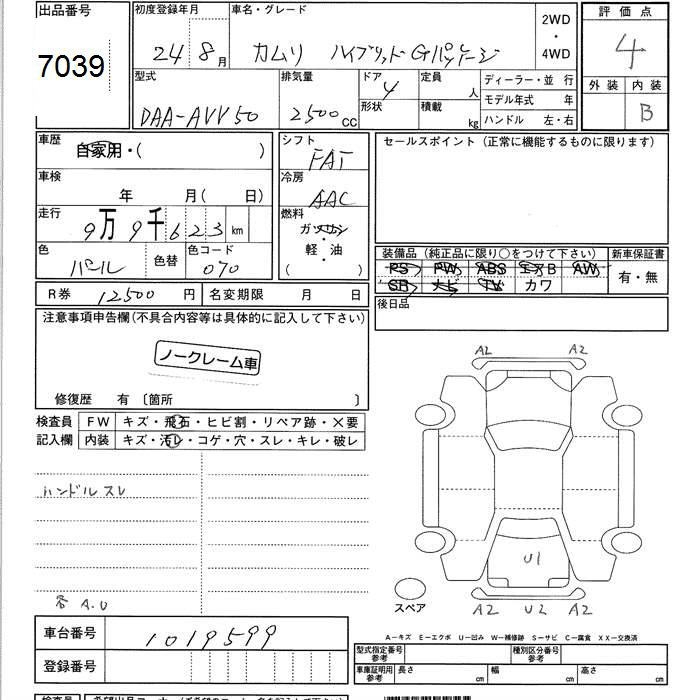 出品番号
7039
初度登録年月
24 8月
車名・グレード
カムリ ハイブリッド Gパッケージ
2WD
・
4WD
評価点
4
外装 内装
B
型式
DAA-AVV50
排気量
2500cc
ドア
4
形状
定員
人
積載
kg
ディーラー・並 行
モデル年式 年
ハンドル 左・右
車歴
自家用・( )
車検
年 月( 日)
走行
9万9千623km
色
パール
色替
色コード
070
シフト
FAT
冷房
AAC
燃料
ガソリン
・
軽・油
( )
セールスポイント(正常に機能するものに限ります)
装備品(純正品に限り○をつけて下さい)
PS PW ABS エアB AW
SR ナビ TV カワ
新車保証書
有・無
R券 12500円
名変期限 月 日
後日品
注意事項申告欄(不具合内容等は具体的に記入して下さい)
ノークレーム車
修復歴 有〔箇所 〕
検査員
記入欄
FW キズ・飛石・ヒビ割・リペア跡・×要
内装 キズ・汚レ・コゲ・穴・スレ・キレ・破レ
ハンドルスレ
各A.U
A2 A2
U1
スペア
A2 U2 A2
車台番号
1019599
登録番号
A-キズ E-エクボ U-凹み W-補修跡 S-サビ C-腐食 XX-交換済
型式指定番号
参考
種別区分番号
参考
車庫証明用
参考
長さ cm
幅 cm
高さ cm